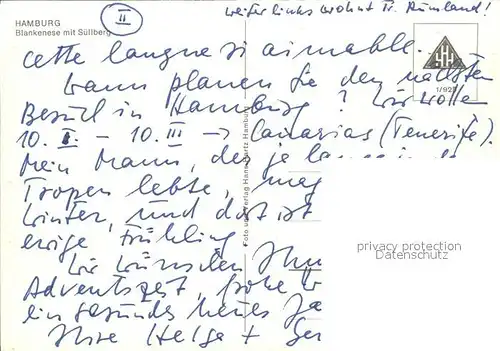 weiter links wohnt Fr. Rumland!
II
HAMBURG
Blankenese mit Süllberg
cette langue si aimable.
Wann planen Sie den nächsten
Besuch in Hamburg? Wir wollen
10. II – 10. III → Canarias (Teneriffe).
Mein Mann, der je lange in d
Tropen lebte, mag
Winter, und dort ist
ewige Frühling
Wir wünschen Ihn
Adventszeit, frohe W
ein gesundes neues Ja
Ihre Helga + Ger
1/925
Foto und Verlag Hans Hartz Hamburg
privacy protection
Datenschutz